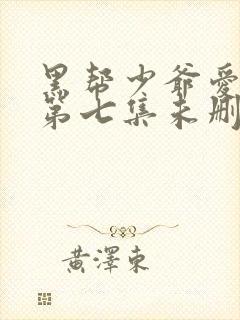 黑帮少爷爱
第七集未删
黄澤東